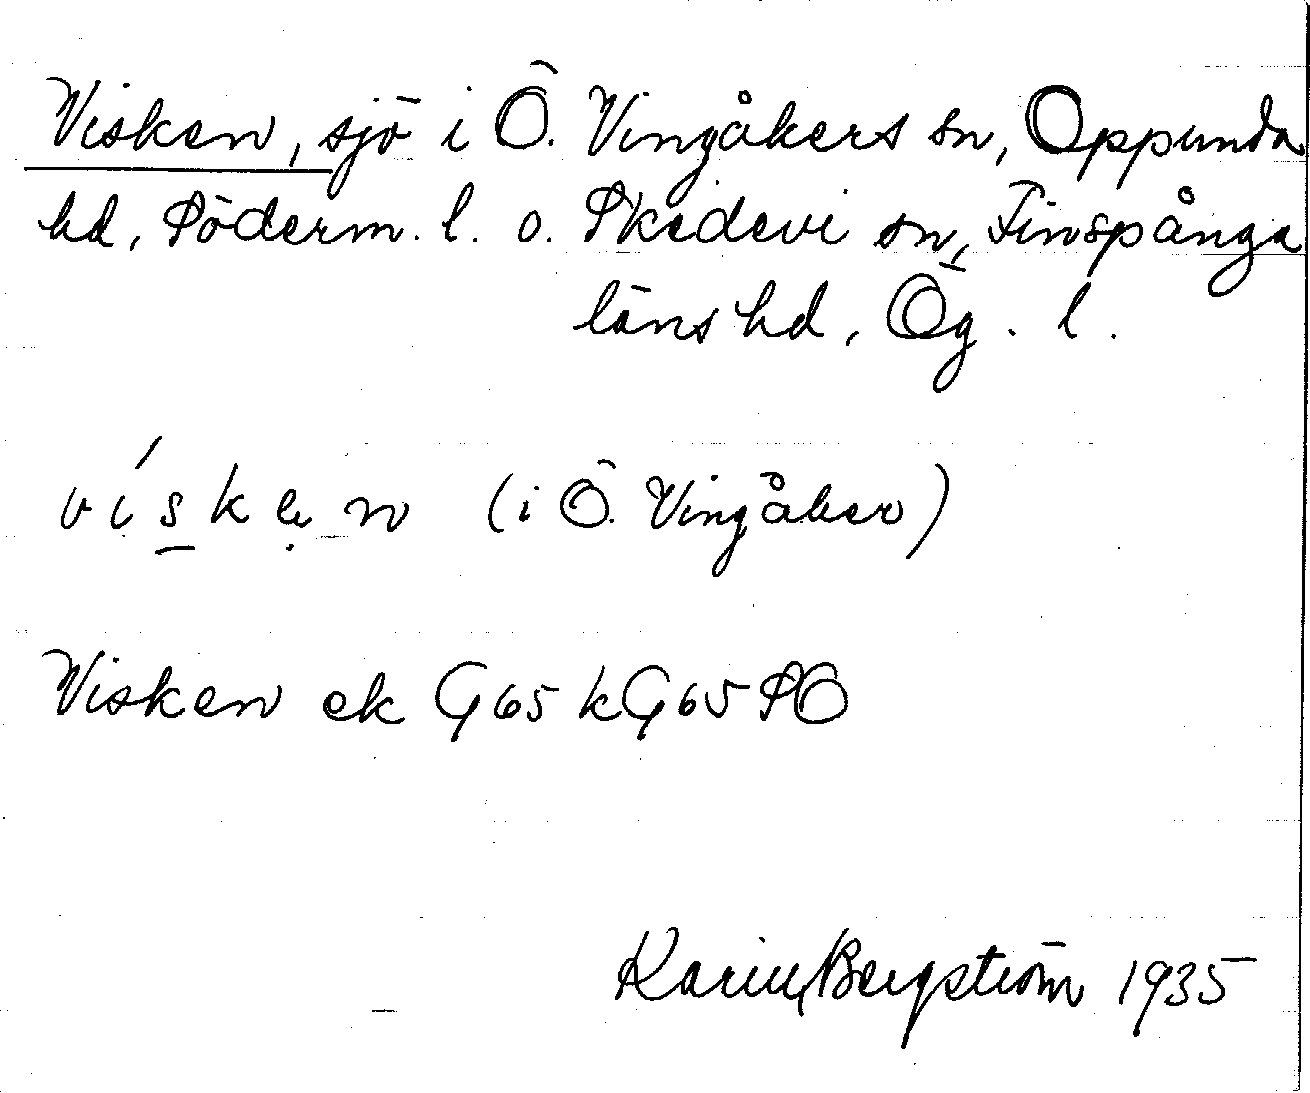 Visken, sjö i Ö. Vingåkers sn, Oppunda
hd, Söderm. l. o. Skedevi sn, Finspånga
läns hd, Ög. l.
víṣkẹn (i Ö. Vingåker)
Visken ek G65 kG65 SO
Karin Bergström 1935